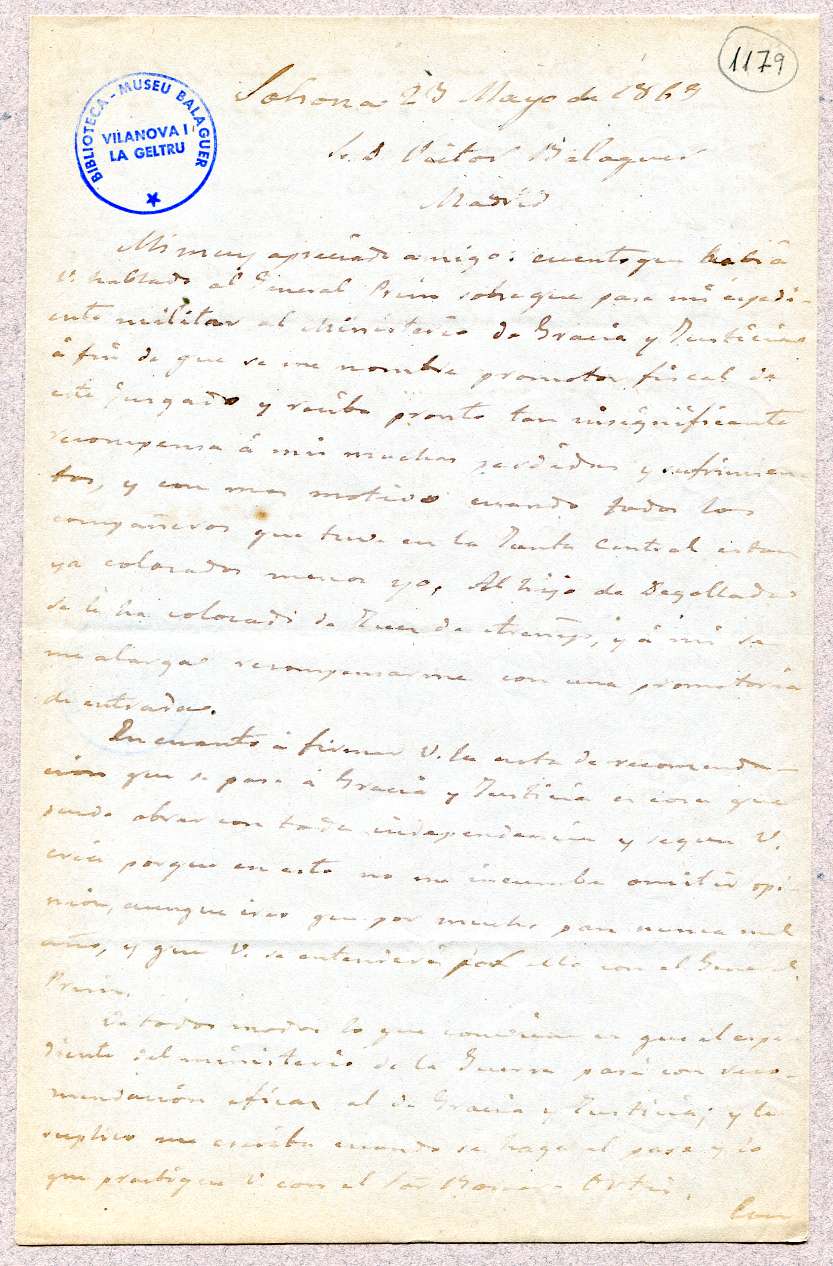 1179
BIBLIOTECA - MUSEU BALAGUER
VILANOVA I
LA GELTRU
Solsona 23 Mayo de 1869
Sr. D Victor Balaguer
Madrid
Mi muy apreciado amigo: cuento que habrá
V. hablado al General Prim sobre que pase mi espedi-
ente militar al Ministerio de Gracia y Justicia
á fin de que se me nombre promotor fiscal de
este juzgado y reciba pronto tan insignificante
recompensa á mis muchas perdidas y sufrimien
tos, y con mas motivo cuando todos los
compañeros que tuve en la Junta Central estan
ya colocados menos yo. Al hijo de Degollada
se le ha colocado de Juez de Arenys, y á mi se
me alarga recompensarme con una promotoria
de entrada.
En cuanto á firmar V. la nota de recomenda-
cion que se pase á Gracia y Justicia es cosa que
puede obrar con toda independencia y segun V.
crea porque en esto no me incumbe emitir opi-
nion, aunque creo que por mucho pan nunca mal
año, y que V. se entenderá para ello con el General
Prim.
De todos modos lo que conviene es que el espe-
diente del ministerio de la Guerra pase con reco-
mendacion eficaz al de Gracia y Justicia; y le
suplico me escriba cuando se haga el pase y lo
que practique V. con el Sor Romero Ortiz.